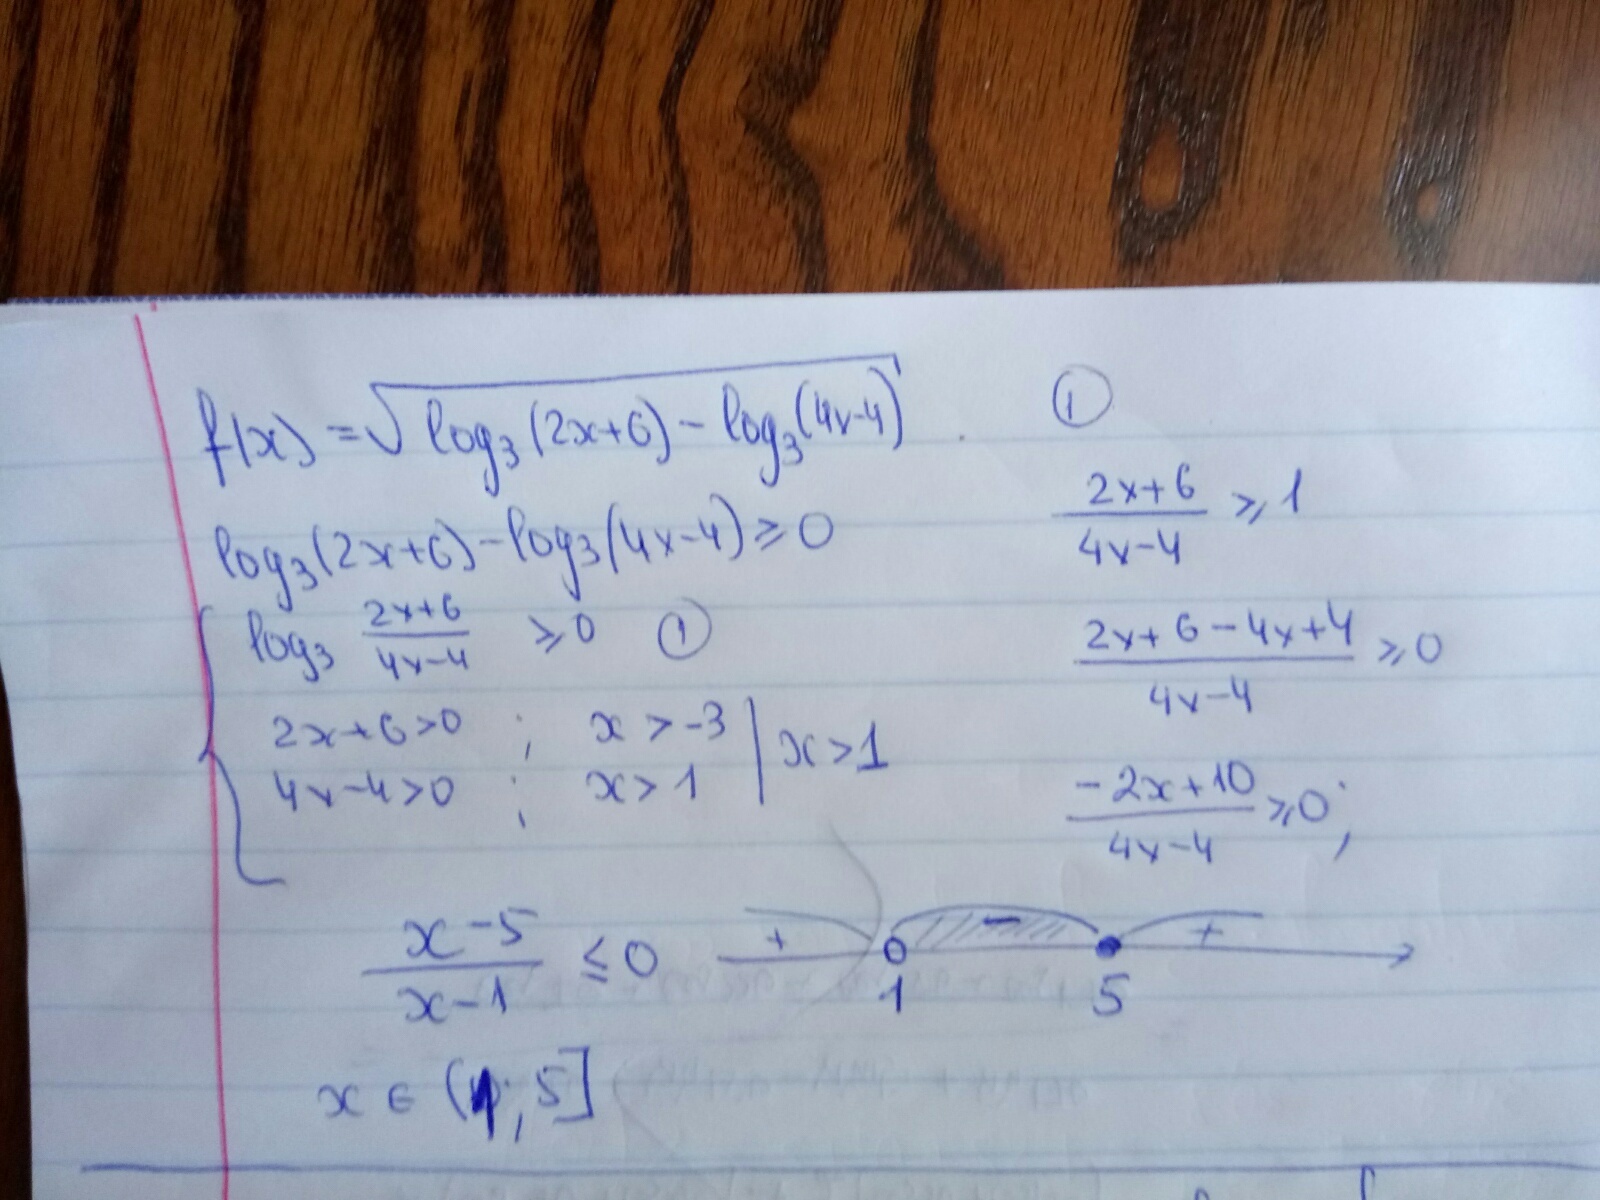 f(x) = √(log₃(2x+6) - log₃(4x-4))
log₃(2x+6) - log₃(4x-4) ≥ 0
log₃ (2x+6)/(4x-4) ≥ 0 ①
2x+6>0 ; x > -3
4x-4>0 ; x > 1
x > 1
①
(2x+6)/(4x-4) ≥ 1
(2x+6-4x+4)/(4x-4) ≥ 0
(-2x+10)/(4x-4) ≥ 0;
(x-5)/(x-1) ≤ 0
+ - +
1 5
x ∈ (1; 5]